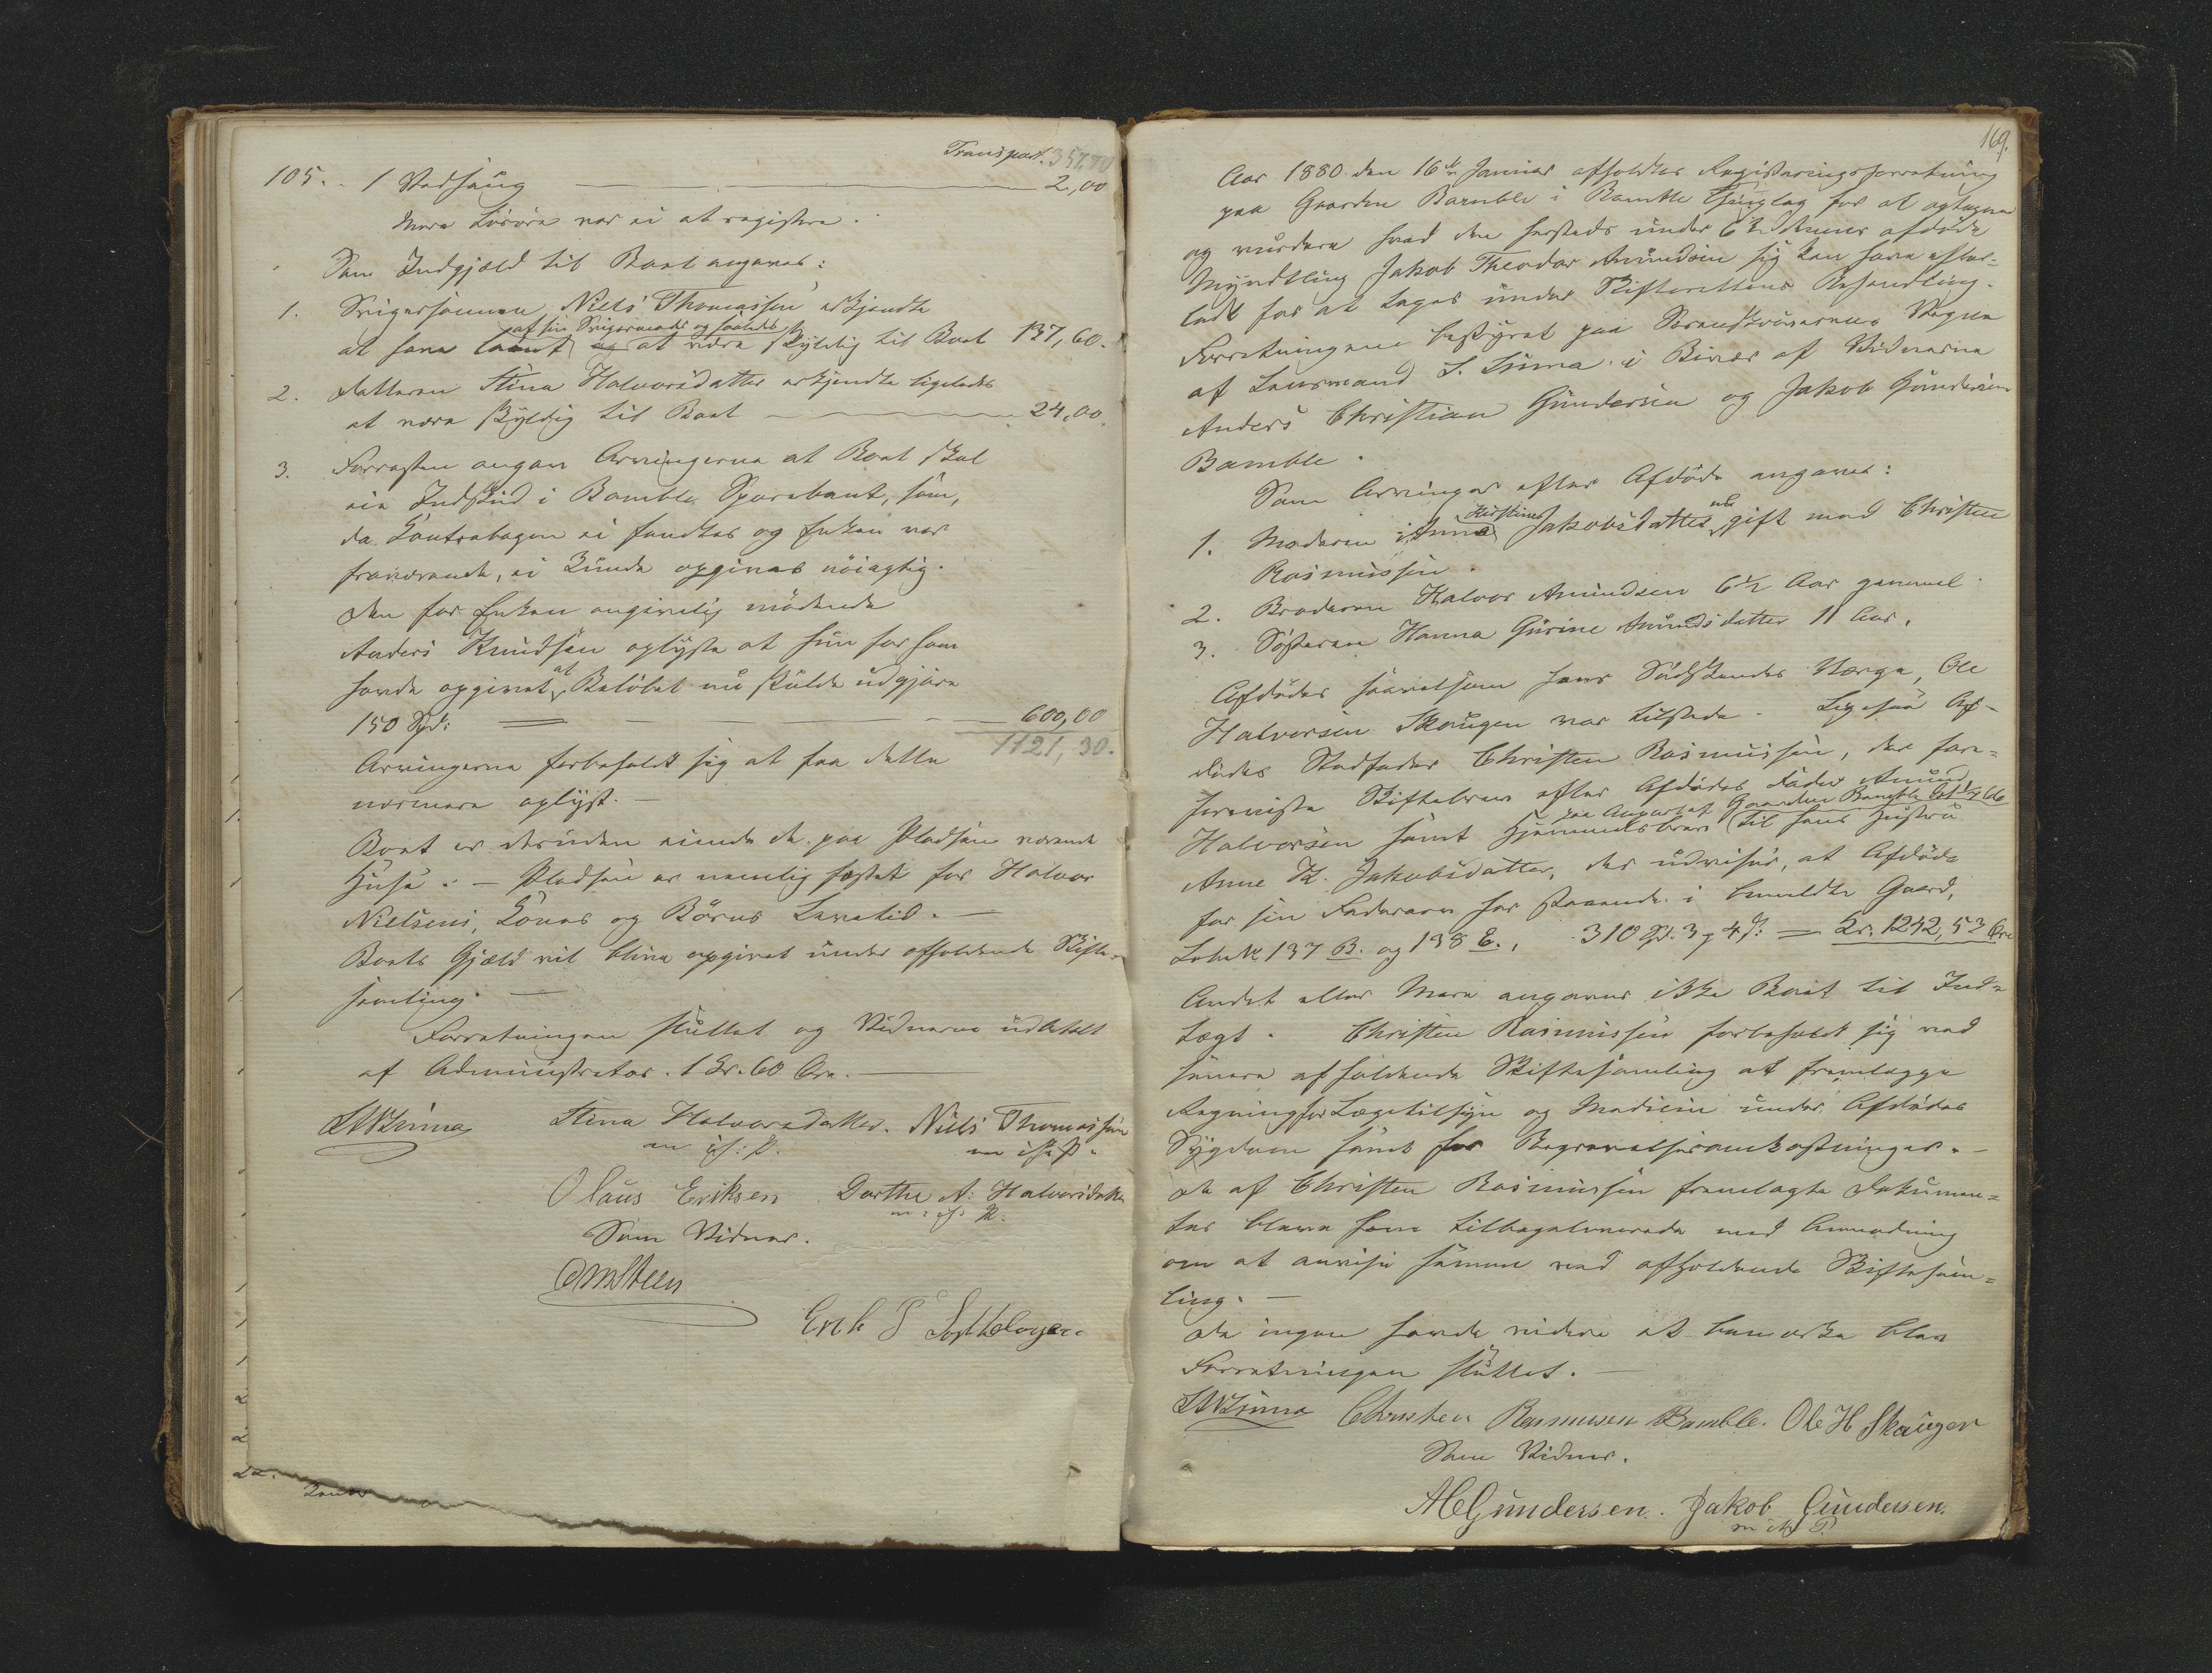 Transport. 357,70
105. 1 Vadsæng 2,00
Mere Løsøre var ei at registere.
Som Indgjæld til Boet angaves:
1. Svigersønnen Niels Thomassen erkjendte
af sin Svigermoder og saaledes
at have laant og at være skyldig til Boet 137,60.
2. Datteren Stina Halvorsdatter erkjendte ligeledes
at være skyldig til Boet 24,00.
3. Forresten angav Arvingerne at Boet skal
eie Indskud i Bamble Sparebank, som,
da Contrabogen ei fandtes og Enken var
fraværende, ei kunde opgives nøiagtig.
Den for Enken angivelig mødende
Anders Knudsen oplyste at hun for ham
havde opgivet, at Beløbet nu skulde udgjøre
150 Spd: 600,00
1121,30.
Arvingerne forbeholdt sig at faa dette
nærmere oplyst. —
Boet er desuden eiende de paa Pladsen værende
Huse. — Pladsen er nemlig fæstet for Halvor
Nielsens, Kones og Børns Levetid. —
Boets Gjæld vil blive opgivet under afholdende Skifte-
samling. —
Forretningen sluttet og Vidnerne udbetalt
af Administrator. 1 Kr. 60 Øre. —
Stina Halvorsdatter. Niels Thomassen
m. i h. P. m i h. P.
Olaus Eriksen Dorthe A. Halvorsdatter
m. i h. P.
Som Vidner.
169.
Aar 1880 den 16de Januar afholdtes Registeringsforretning
paa Gaarden Bamble i Bamble Thinglag for at optegne
og vurdere hvad den hersteds under 6te dennes afdøde
Myndtling Jakob Theodor Amundsen sig kan have efter-
ladt for at tages under Skifterettens Behandling.
Forretningen bestyret paa Sorenskriverens Vegne
af Lensmand L. Linna i Bivær af Vidnerne
Anders Christian Gundersen og Jakob Gundersen
Bamble.
Som Arvinger efter Afdøde angaves:
1. Moderen Anne Kirstine Jakobsdatter nu gift med Christen
Rasmussen.
2. Broderen Halvor Amundsen 6½ Aar gammel.
3. Søsteren Hanna Gurine Amundsdatter 11 Aar.
Afdødes saavelsom hans Sødskendes Værge, Ole
Halvorsen Skaugen var tilstede. Ligesaa Af-
dødes Stedfader Christen Rasmussen, der fore-
foreviste Skiftebrev efter Afdødes Fader Amund
paa Anpart af Gaarden Bamble
Halvorsen samt Hjemmelsbrev til hans Hustru
Anne K. Jakobsdatter, der udviser, at Afdøde
for sin Fadersarv har staaende i bemeldte Gaard,
Løbe № 137 B. og 138 E., 310 Spd. 3 4 = Kr. 1242,53 Øre
Andet eller Mere angaves ikke Boet til Ind-
tægt. Christen Rasmussen forbeholdt sig ved
senere afholdende Skiftesamling at fremlægge
Regning for Lægetilsyn og Medicin under Afdødes
Sygdom samt for Begravelsesomkostninger. —
De af Christen Rasmussen fremlagte Dokumen-
ter bleve ham tilbageleverede med Anmodning
om at anvise samme ved afholdende Skiftesam-
ling. —
Da ingen havde videre at bemærke blev
Forretningen sluttet. —
Christen Rasmussen Bamble. Ole H Skaugen
Som Vidner.
A C Gundersen. Jakob Gundersen.
m i h P